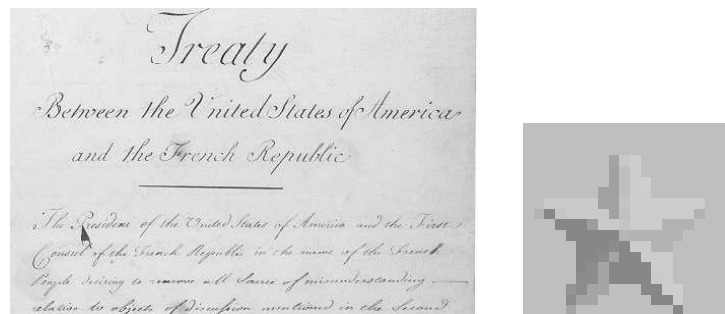 Treaty
Between the United States of America
and the French Republic
The President of the United States of America and the First
Consul of the French Republic in the name of the French
People desiring to remove all Source of misunderstanding
relative to objects of discussion mentioned in the Second